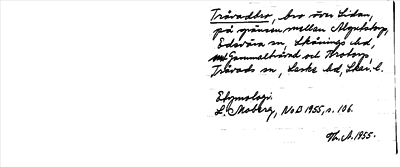 Trävadbro, bro över Lidan,
på gränsen mellan Algutstorp,
Edsvära sn, Skånings hd,
Gammalträvad och Torp,
Trävads sn, Laske hd, Skar. l.
Etymologi.
L. Moberg, NoB 1955, s. 106.
Th. A. 1955.